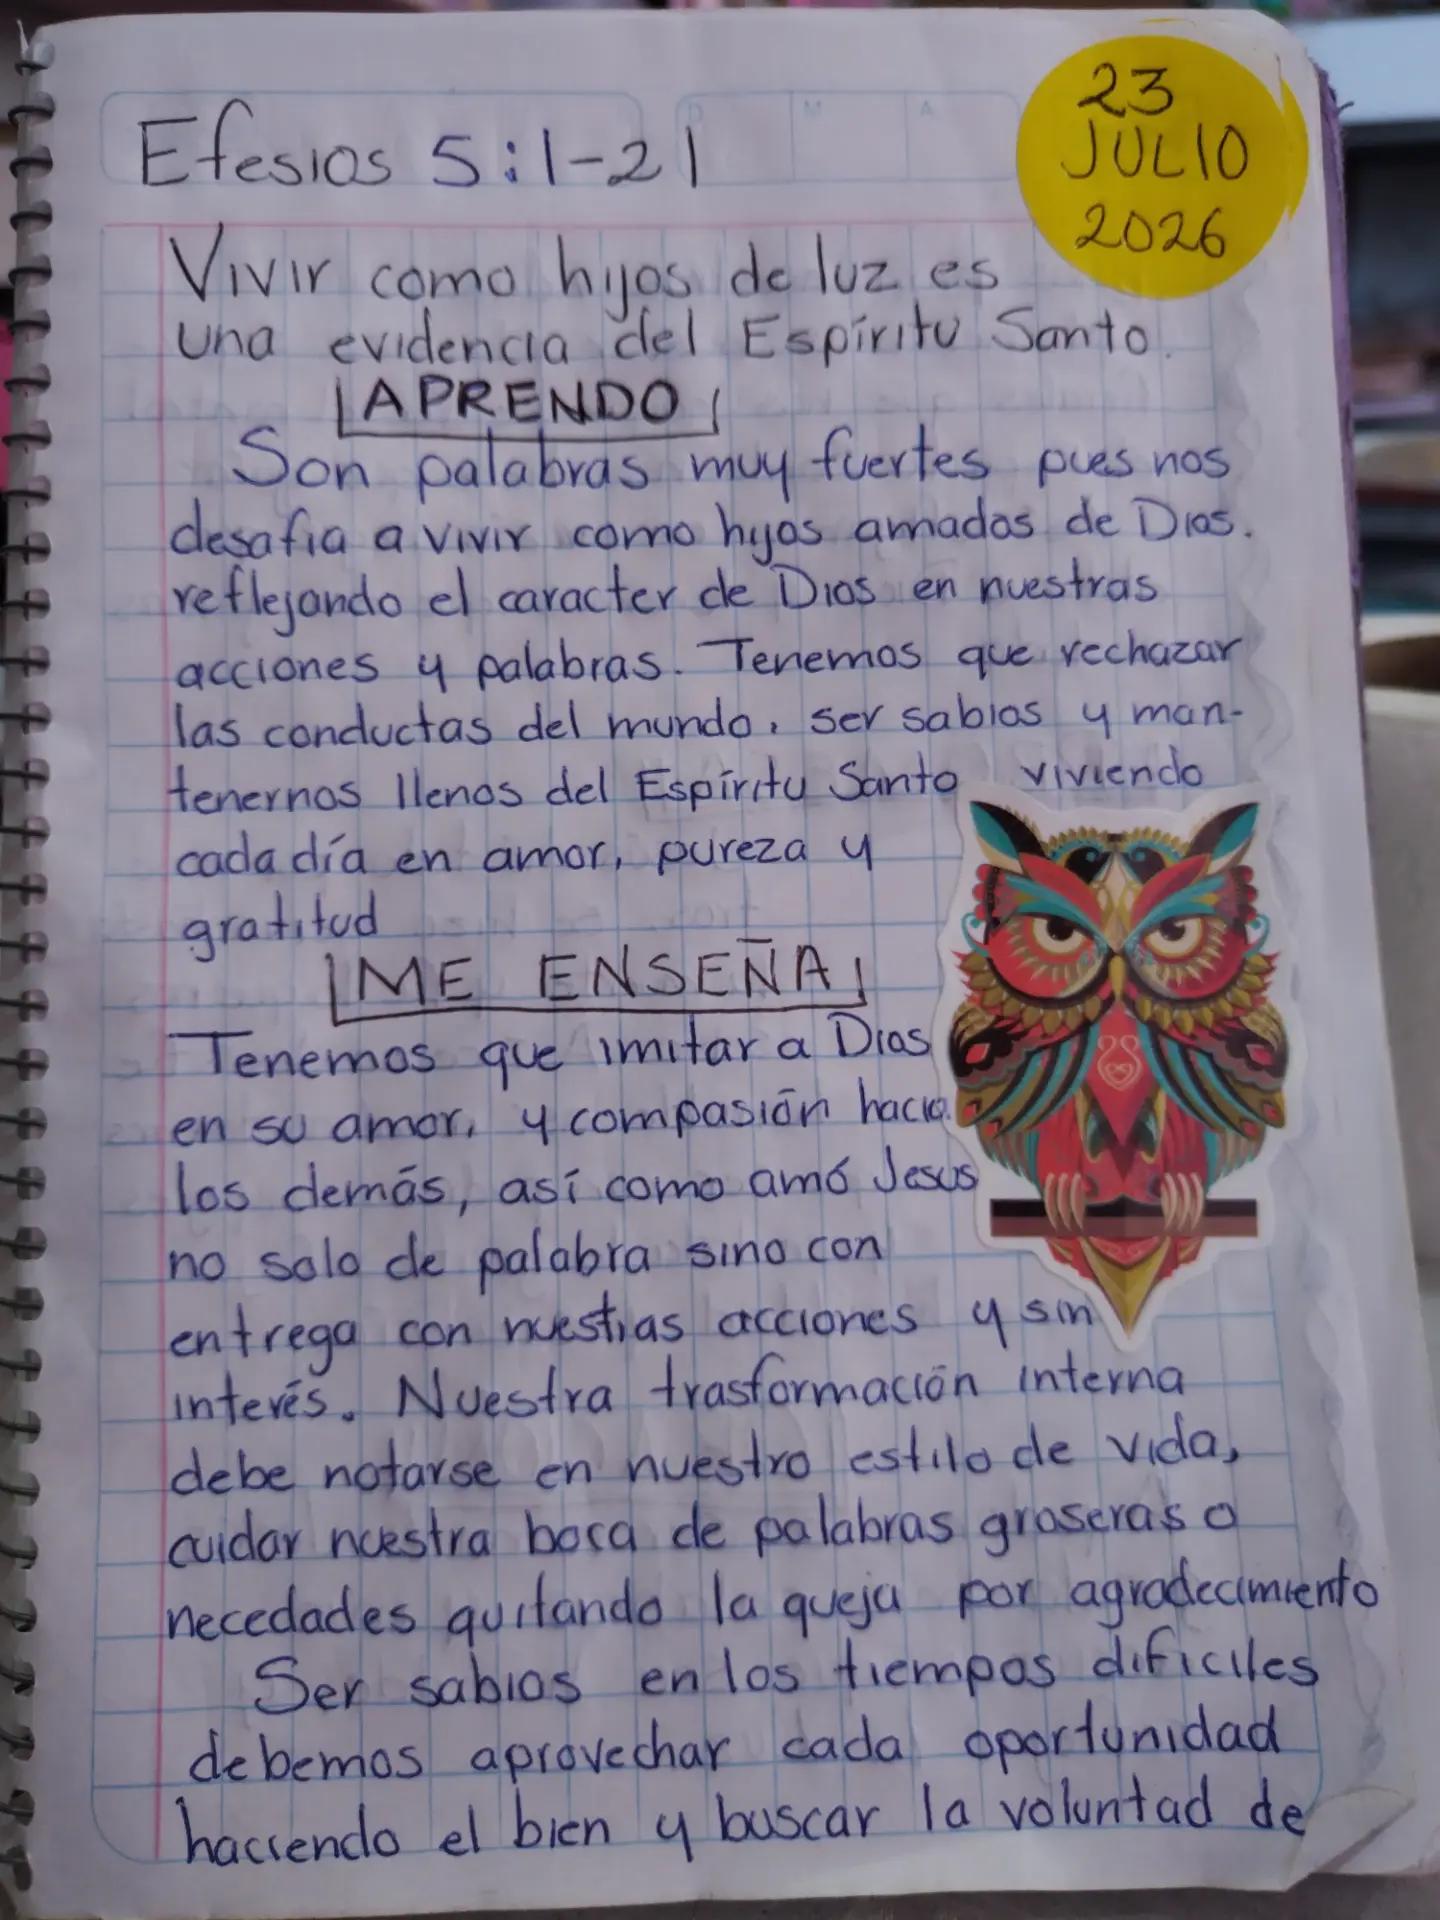 Efesios 5:1-21
23
JULIO
2026
Vivir como hijos de luz es
una evidencia del Espíritu Santo.
APRENDO
Son palabras muy fuertes pues nos
desafia a vivir como hijos amados de Dios.
reflejando el caracter de Dios en nuestras
acciones y palabras. Tenemos que rechazar
las conductas del mundo, ser sabios y man-
tenernos llenos del Espíritu Santo viviendo
cada día en amor, pureza y
gratitud
ME ENSEÑA
Tenemos que imitar a Dios
en su amor, y compasión hacia
los demás, así como amó Jesus
no solo de palabra sino con
entrega con nuestras acciones y sin
interés. Nuestra trasformación interna
debe notarse en nuestro estilo de vida,
cuidar nuestra boca de palabras groseras o
necedades quitando la queja por agradecimiento
Ser sabios en los tiempos dificiles
debemos aprovechar cada oportunidad
haciendo el bien y buscar la voluntad de